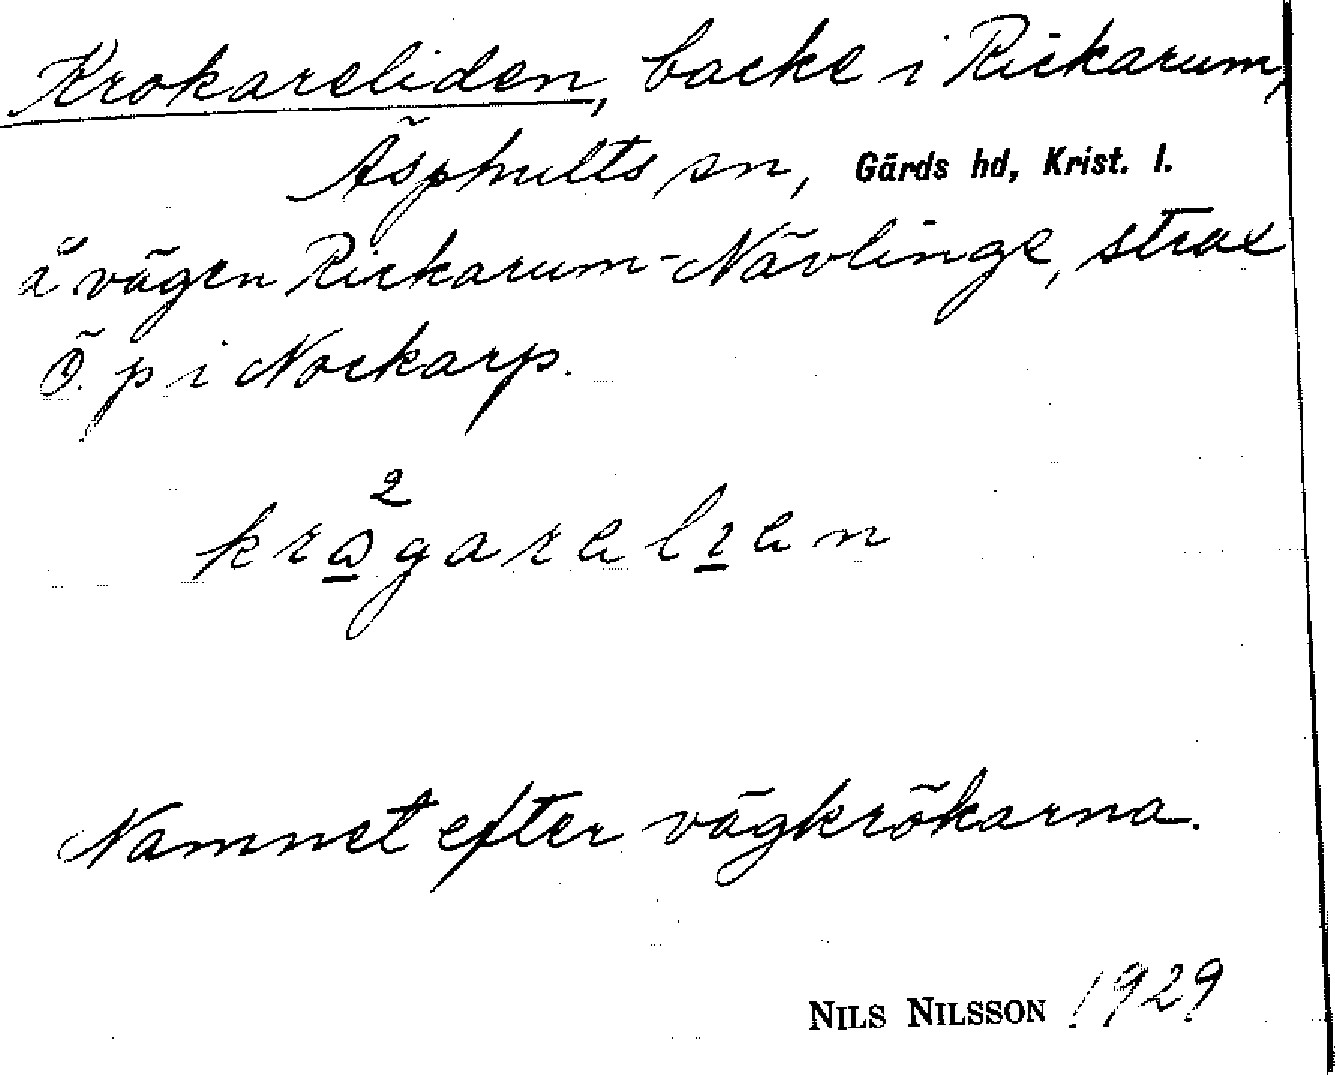 Krokareliden, backe i Rickarum,
Äsphults sn, Gärds hd, Krist. l.
å vägen Rickarum-Nävlinge, strax
Ö. p i Nockarp.
2
krågareli̱en
Namnet efter vägkrökarna.
NILS NILSSON 1929